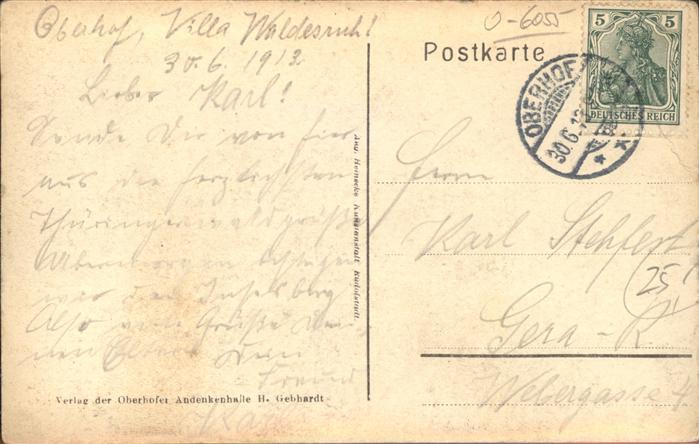 Oberhof, Villa Waldesruh!
30.6.1913
Lieber Karl!
Sende Dir von hier
aus die herzlichsten
Thüringerwaldgrüße
war der Inselsberg
Also viele Grüße Dei-
nen Eltern Dein
Freund
Verlag der Oberhofer Andenkenhalle H. Gebhardt
Aug. Heinecke Kunstanstalt Rudolstadt.
0-6055
Postkarte
5 5
DEUTSCHES REICH
OBERHOF
30.6.13
Herrn
Karl Stehfest
25
Gera - R.
Webergasse 4